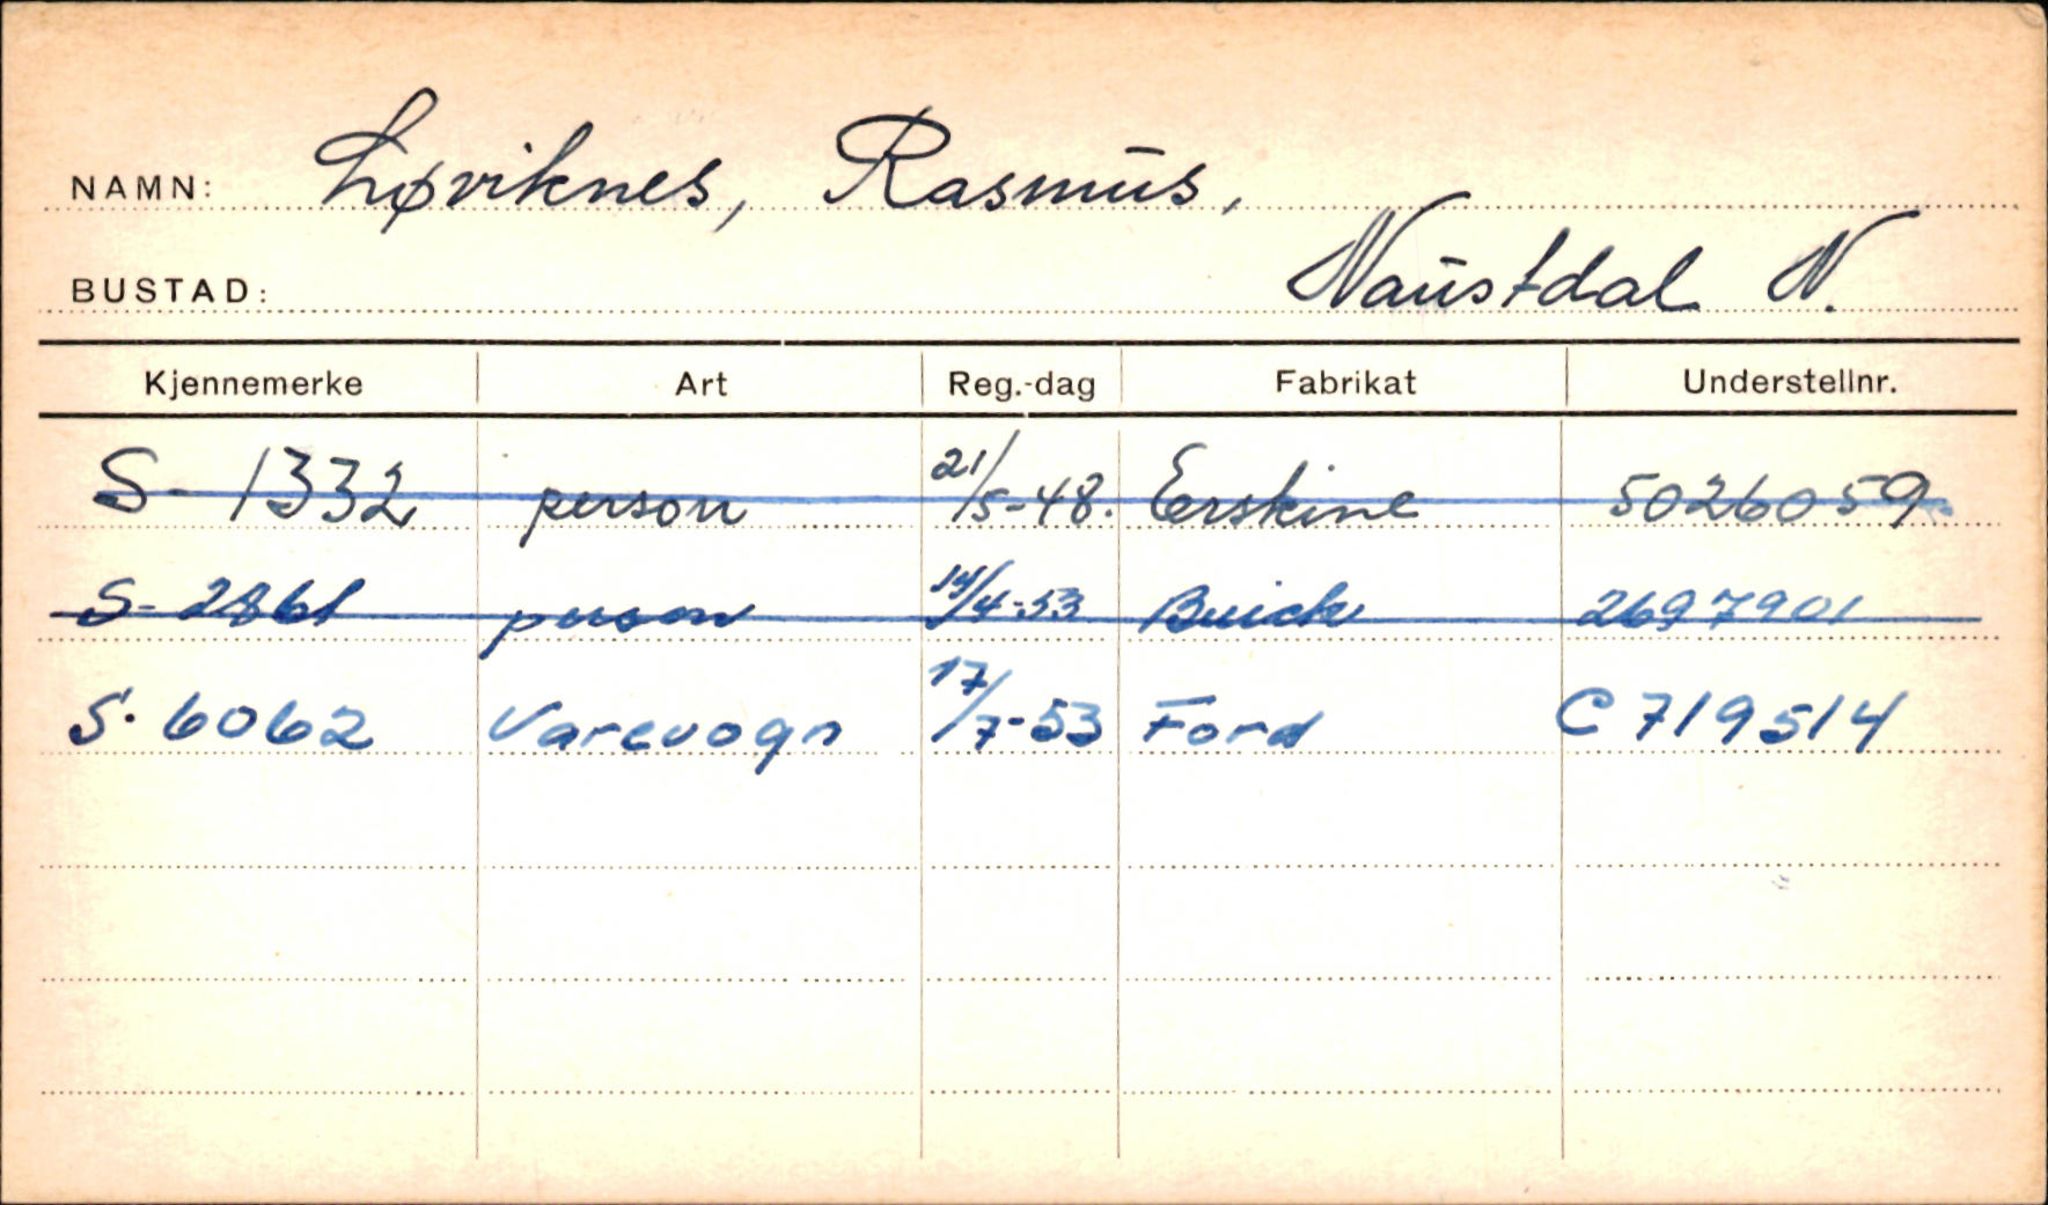 NAMN: Løviknes, Rasmus,
BUSTAD: Naustdal N.
Kjennemerke Art Reg.-dag Fabrikat Understellnr.
S- 1332 person 21/5-48. Erskine 5026059
S- 2861 person 14/4-53 Buick 2697901
S. 6062 Varevogn 17/7-53 Ford C719514